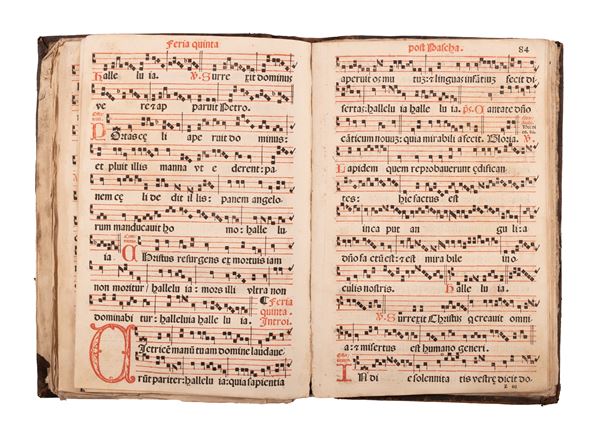 Feria quinta
Halle lu ia. V. Surre xit dominus
ve re z ap paruit Petro.
Portas cę li ape ruit do minus:
et pluit illis manna vt e derent: pa
nem cę li de dit il lis: panem angelo
rum manducauit ho mo: hallelu
ia Christus resurgens ex mortuis iam
non moritur / hallelu ia: mors illi vltra non
dominabi tur: halleluia hallelu ia.
Feria quinta. Introi.
Victricē manū tuam domine laudaue
rūt pariter: hallelu ia: quia sapientia
post Pascha. 84
aperuit os mu tuz: z linguas infātiuz fecit di
sertas: hallelu ia hallelu ia. ps. Cantate dño
cāticum nouuz: quia mirabilia fecit. Gloria. V.
Lapidem quem reprobauerunt ędifican
tes: hic factus est
in caput an gu li: a
dño fa ctū est: z est mira bile in o
culis nostris. Halle lu ia.
V. Surrexit Christus q creauit omni
a: z misertus est humano generi.
In di e solennita tis vestrę dicit do
z iiij